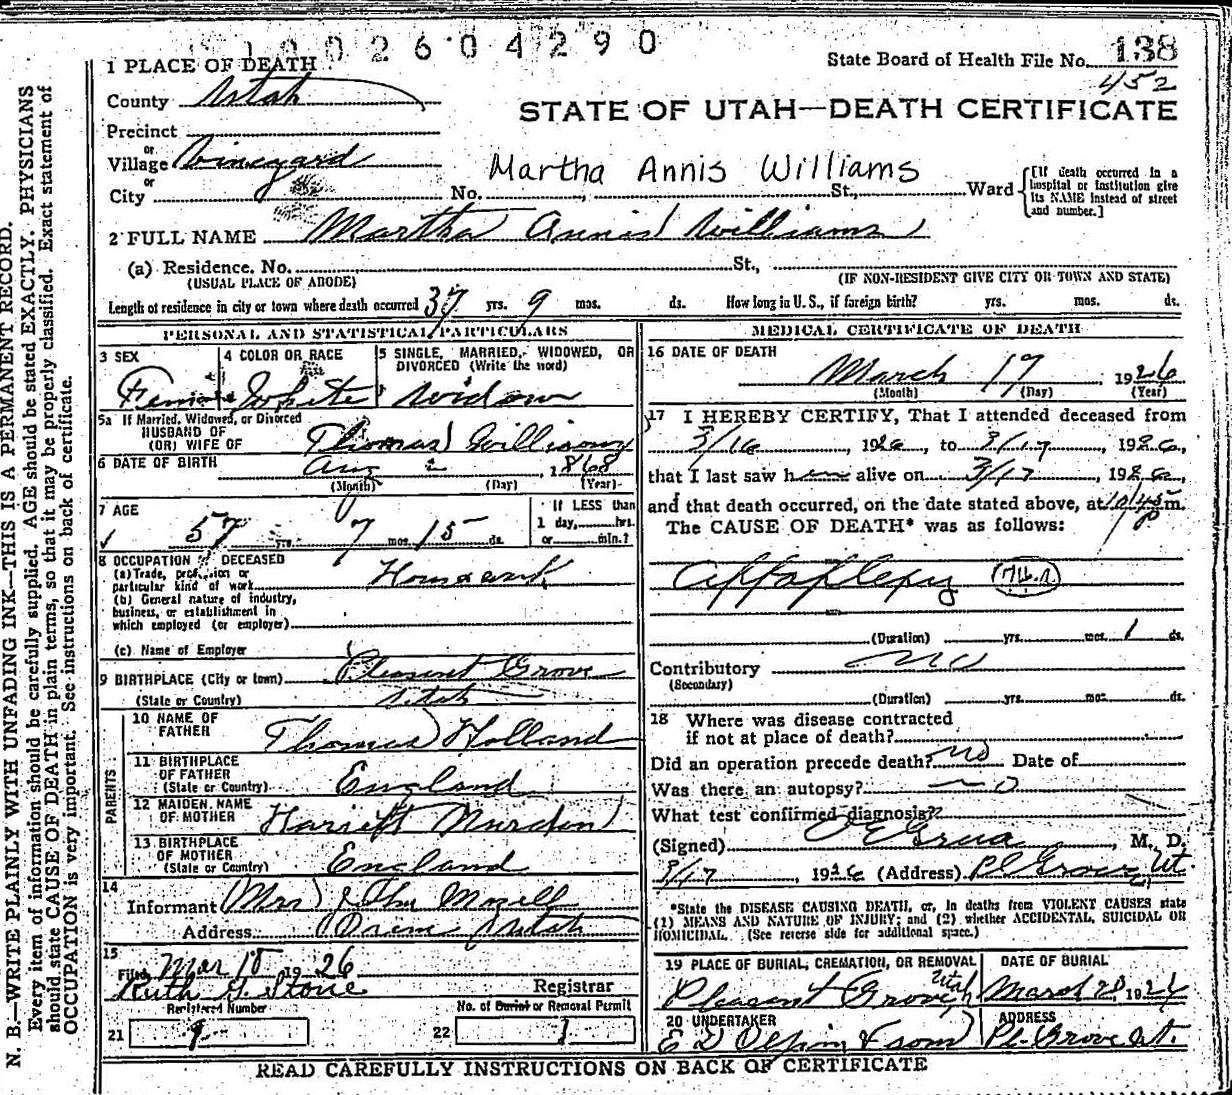 1002604290
State Board of Health File No. 138
452
1 PLACE OF DEATH
County Utah
STATE OF UTAH—DEATH CERTIFICATE
Precinct
or
Village Vineyard
or
Martha Annis Williams
City No. St., Ward
[If death occurred in a hospital or institution give its NAME instead of street and number.]
2 FULL NAME Martha Annis Williams
(a) Residence. No. St.,
(USUAL PLACE OF ABODE) (IF NON-RESIDENT GIVE CITY OR TOWN AND STATE)
Length of residence in city or town where death occurred 37 yrs. 9 mos. ds. How long in U.S., if foreign birth? yrs. mos. ds.
PERSONAL AND STATISTICAL PARTICULARS
3 SEX
Female
4 COLOR OR RACE
White
5 SINGLE, MARRIED, WIDOWED, OR DIVORCED (Write the word)
Widow
5a If Married, Widowed, or Divorced
HUSBAND OF
(OR) WIFE OF Thomas Williams
6 DATE OF BIRTH Aug 2 1868
(Month) (Day) (Year)
7 AGE
57 yrs. 7 mos. 15 ds.
If LESS than
1 day, hrs.
or min.?
8 OCCUPATION OF DECEASED
(a) Trade, profession or
particular kind of work
(b) General nature of industry,
business, or establishment in
which employed (or employer)
(c) Name of Employer
9 BIRTHPLACE (City or town) Pleasant Grove
(State or Country) Utah
PARENTS
10 NAME OF FATHER Thomas Holland
11 BIRTHPLACE OF FATHER
(State or Country) England
12 MAIDEN NAME OF MOTHER Harriett
13 BIRTHPLACE OF MOTHER
(State or Country) England
14
Informant Mrs
Address Orem Utah
15
Filed Mar 18 1926
Ruth G. Stone Registrar
Registered Number
21 9
No. of Burial or Removal Permit
22 1
MEDICAL CERTIFICATE OF DEATH
16 DATE OF DEATH
March 17, 1926
(Month) (Day) (Year)
17 I HEREBY CERTIFY, That I attended deceased from
3/16, 1926, to 3/17, 1926,
that I last saw her alive on 3/17, 1926,
and that death occurred, on the date stated above, at 10/45 p m.
The CAUSE OF DEATH* was as follows:
Appaplexy 74a
(Duration) yrs. mos. 1 ds.
Contributory no
(Secondary)
(Duration) yrs. mos. ds.
18 Where was disease contracted
if not at place of death?
Did an operation precede death? no Date of
Was there an autopsy? no
What test confirmed diagnosis?
(Signed) O E Grua, M. D.
3/17, 1926 (Address) Pl Grove, Ut.
*State the DISEASE CAUSING DEATH, or, in deaths from VIOLENT CAUSES state
(1) MEANS AND NATURE OF INJURY; and (2) whether ACCIDENTAL, SUICIDAL OR
HOMICIDAL. (See reverse side for additional space.)
19 PLACE OF BURIAL, CREMATION, OR REMOVAL
Pleasant Grove Utah
DATE OF BURIAL
March 20 1926
20 UNDERTAKER
E D Olpin & sons
ADDRESS
Pl. Grove Ut.
READ CAREFULLY INSTRUCTIONS ON BACK OF CERTIFICATE
N. B.—WRITE PLAINLY WITH UNFADING INK—THIS IS A PERMANENT RECORD.
Every item of information should be carefully supplied. AGE should be stated EXACTLY. PHYSICIANS
should state CAUSE OF DEATH in plain terms, so that it may be properly classified. Exact statement of
OCCUPATION is very important. See instructions on back of certificate.